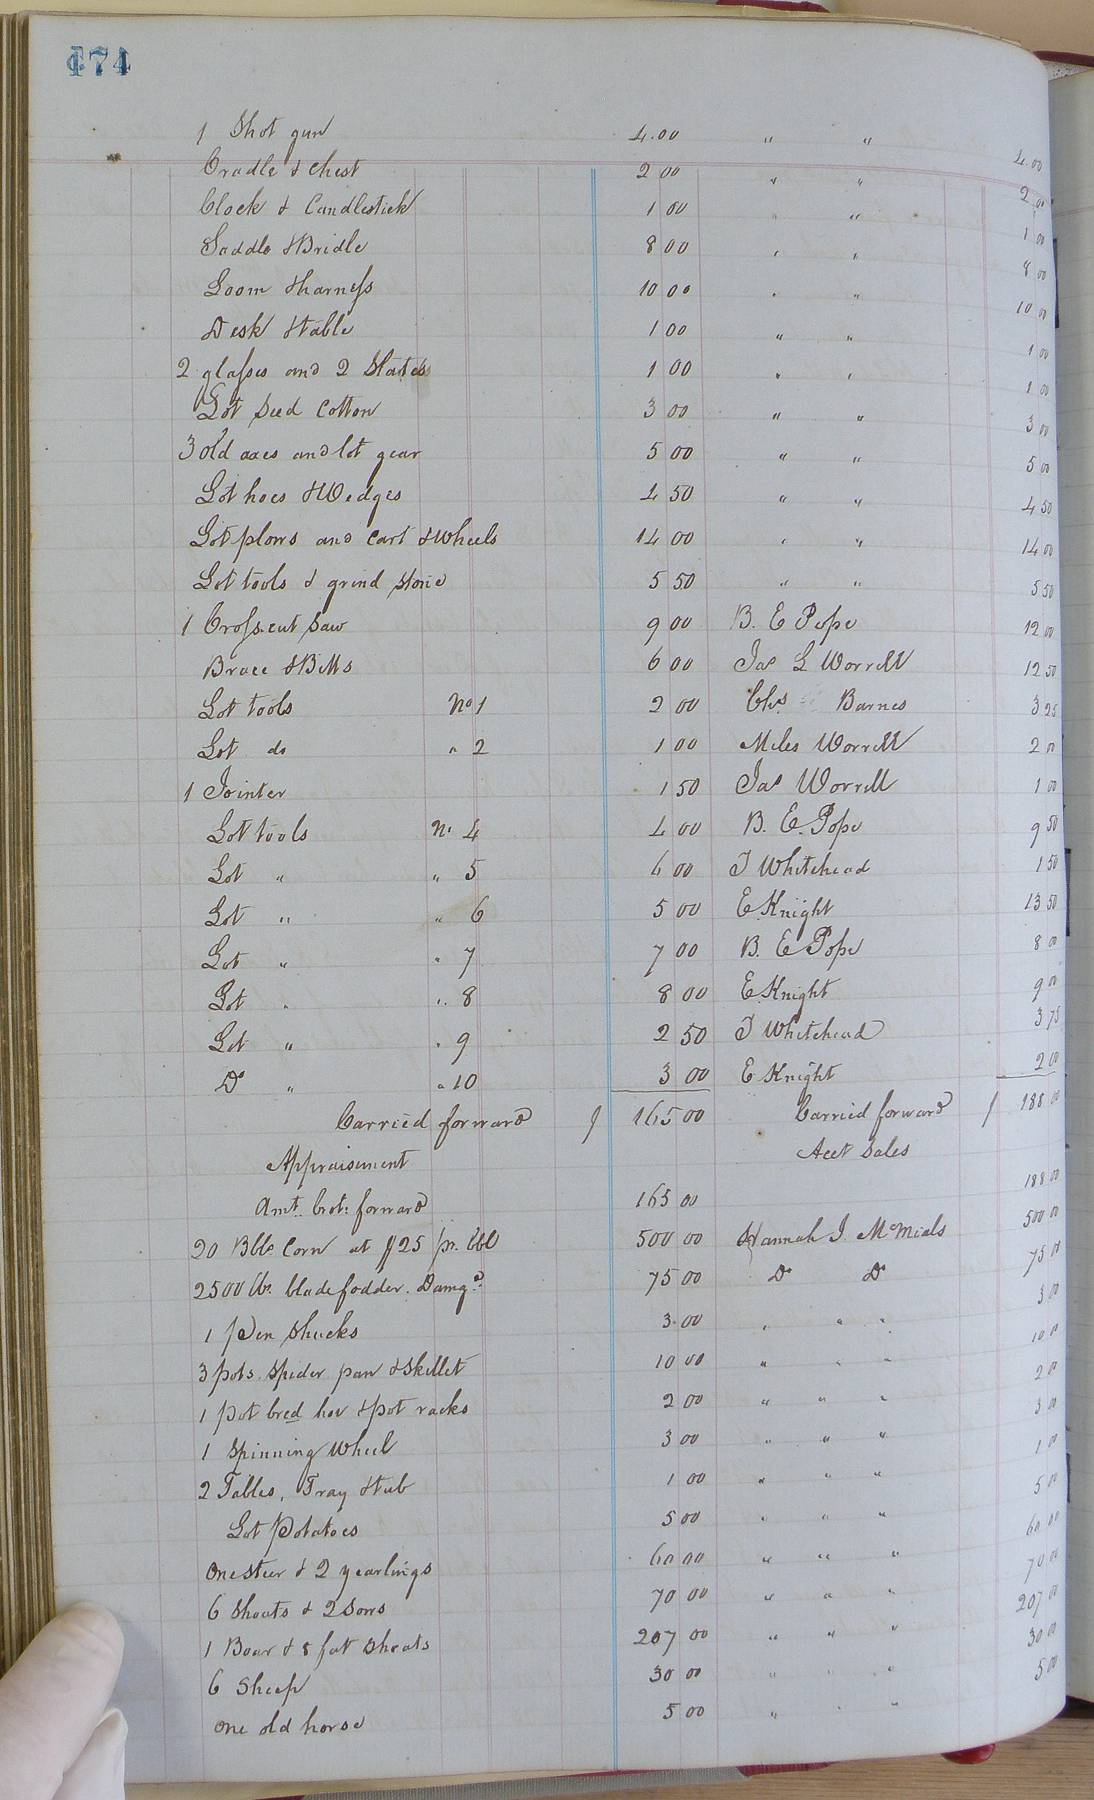 474
1 Shot gun 4.00 " " 4.00
Cradle & Chest 2 00 " " 2 00
Clock & Candlestick 1 00 " " 1 00
Saddle & Bridle 8 00 " " 8 00
Loom & harness 10 00 " " 10 00
Desk & table 1 00 " " 1 00
2 glasses and 2 Slates 1 00 " " 1 00
Lot Seed Cotton 3 00 " " 3 00
3 old axes and lot gear 5 00 " " 5 00
Lot hoes & Wedges 4 50 " " 4 50
Lot plows and Cart & Wheels 14 00 " " 14 00
Lot tools & grind Stone 5 50 " " 5 50
1 Cross cut Saw 9 00 B. E Pope 12 00
Brace & Bitts 6 00 Jas L Worrell 12 50
Lot tools No 1 2 00 Chs Barnes 3 25
Lot do " 2 1 00 Miles Worrell 2 00
1 Jointer 1 50 Jas Worrell 1 00
Lot tools No 4 4 00 B. E. Pope 9 50
Lot " " 5 6 00 T Whitehead 1 50
Lot " " 6 5 00 E Knight 13 50
Lot " " 7 7 00 B. E Pope 8 00
Lot " " 8 8 00 E Knight 9 00
Lot " " 9 2 50 T Whitehead 3 75
Do " " 10 3 00 E Knight 2 00
Carried forward $ 165 00 Carried forward $ 188 00
Appraisement Acct Sales
Amt. brot: forward 165 00 188 00
20 Bbls Corn at $25 pr. bbl 500 00 Hannah J McMials 500 00
2500 lbs blade fodder. Damgd. 75 00 Do Do 75 00
1 pen Shucks 3.00 " " " 3 00
3 pots Spider pan & Skillet 10 00 " " " 10 00
1 pot bred hoe & pot racks 2 00 " " " 2 00
1 Spinning Wheel 3 00 " " " 3 00
2 Tables, Tray & tub 1 00 " " " 1 00
Lot Potatoes 5 00 " " " 5 00
One steer & 2 yearlings 60 00 " " " 60 00
6 Shoats & 2 Sows 70 00 " " " 70 00
1 Boar & 8 fat Shoats 207 00 " " " 207 00
6 Sheep 30 00 " " " 30 00
One old horse 5 00 " " " 5 00